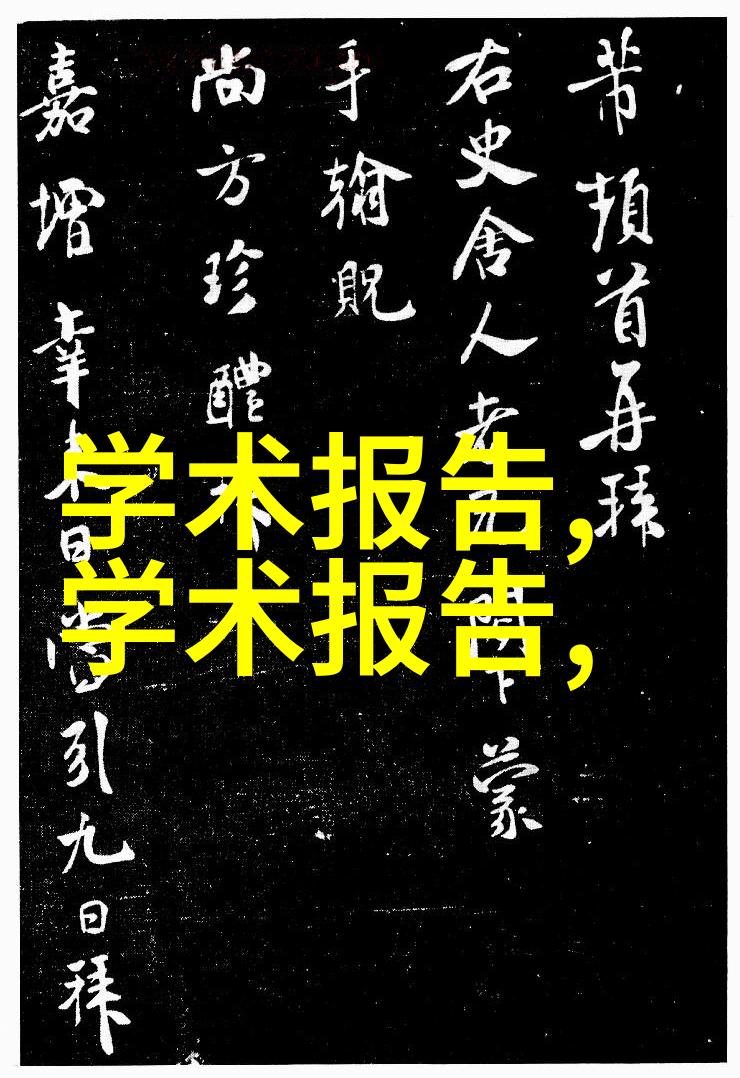 芾頓首再拜
右史舍人老兄下蒙
手翰貺
尚方珍醴
嘉增幸来日當引九日拜
学术报告,
学术报告,